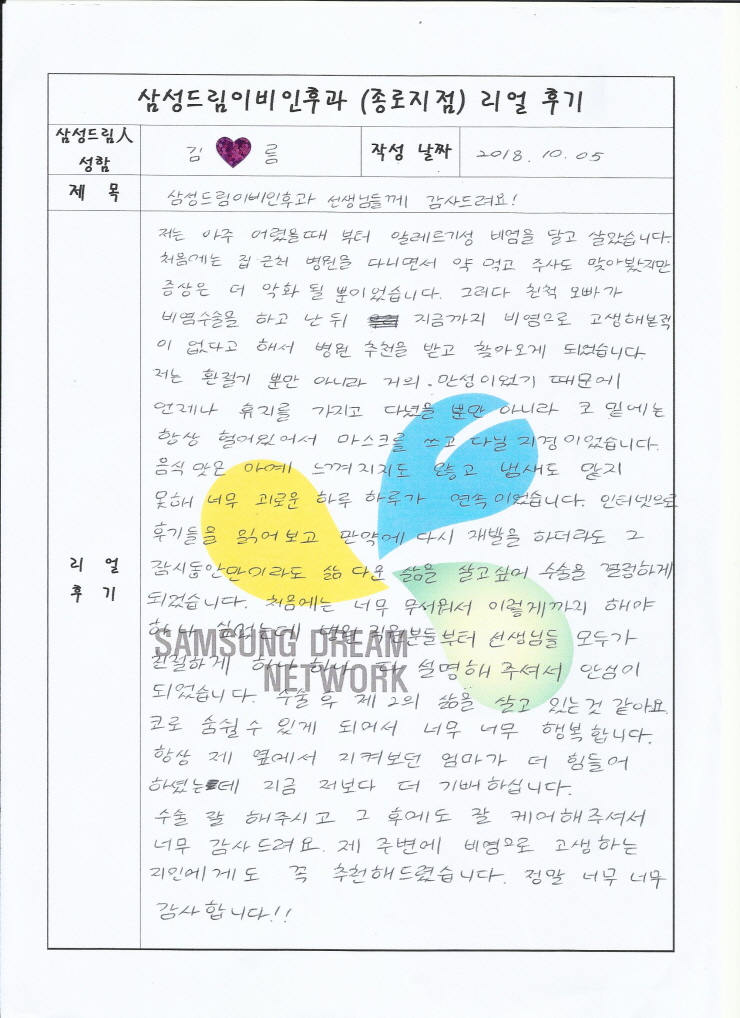 삼성드림이비인후과 (종로지점) 리얼 후기
삼성드림人 성함
김 ♥ 름
작성 날짜
2018. 10. 05
제 목
삼성드림이비인후과 선생님들께 감사드려요!
리 얼
후 기
저는 아주 어렸을때 부터 알레르기성 비염을 달고 살았습니다.
처음에는 집 근처 병원을 다니면서 약 먹고 주사도 맞아봤지만
증상은 더 악화 될 뿐이었습니다. 그러다 친척 오빠가
비염수술을 하고 난 뒤 지금까지 비염으로 고생해본적
이 없다고 해서 병원 추천을 받고 찾아오게 되었습니다.
저는 환절기 뿐만 아니라 거의 만성이었기 때문에
언제나 휴지를 가지고 다녔을 뿐만 아니라 코 밑에는
항상 헐어있어서 마스크를 쓰고 다닐 지경이었습니다.
음식 맛은 아예 느껴지지도 않고 냄새도 맡지
못해 너무 괴로운 하루 하루가 연속이었습니다. 인터넷으로
후기들을 읽어보고 만약에 다시 재발을 하더라도 그
잠시동안만이라도 삶 다운 삶을 살고싶어 수술을 결정하게
되었습니다. 처음에는 너무 무서워서 이렇게까지 해야
하나 싶었는데 병원 직원분들부터 선생님들 모두가
친절하게 하나 하나 다 설명해 주셔서 안심이
되었습니다. 수술 후 제 2의 삶을 살고 있는것 같아요.
코로 숨쉴 수 있게 되어서 너무 너무 행복합니다.
항상 제 옆에서 지켜보던 엄마가 더 힘들어
하셨는데 지금 저보다 더 기뻐하십니다.
수술 잘 해주시고 그 후에도 잘 케어해주셔서
너무 감사드려요. 제 주변에 비염으로 고생하는
지인에게도 꼭 추천해드렸습니다. 정말 너무 너무
감사합니다!!
SAMSUNG DREAM
NETWORK